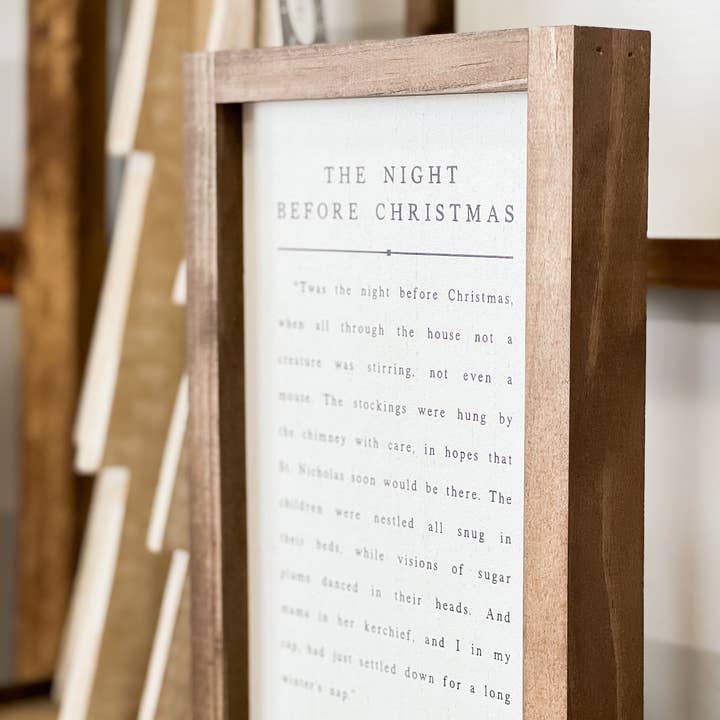 THE NIGHT
BEFORE CHRISTMAS
"Twas the night before Christmas,
when all through the house not a
creature was stirring, not even a
mouse. The stockings were hung by
the chimney with care, in hopes that
St. Nicholas soon would be there. The
children were nestled all snug in
their beds, while visions of sugar
plums danced in their heads. And
mama in her kerchief, and I in my
cap, had just settled down for a long
winter's nap."